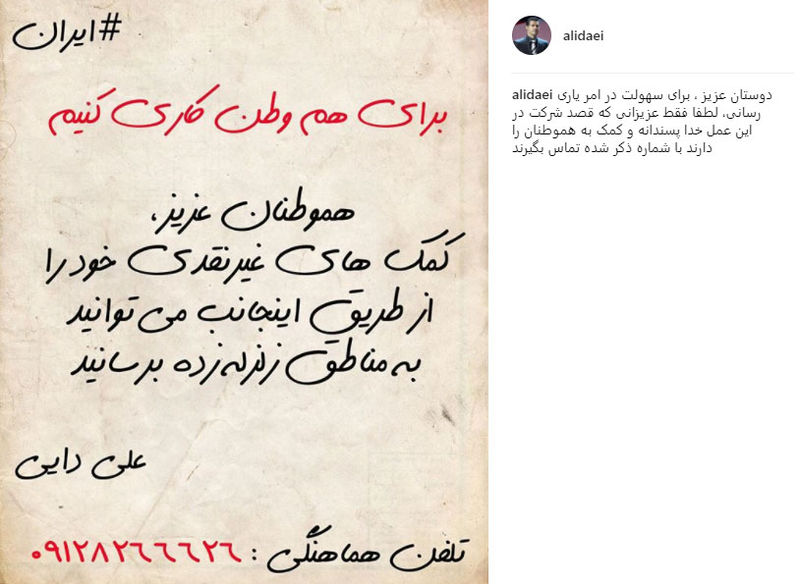 #ایران
برای هم وطن کاری کنیم
هموطنان عزیز،
کمک های غیرنقدی خود را
از طریق اینجانب می توانید
به مناطق زلزله زده برسانید
علی دایی
تلفن هماهنگی : ۰۹۱۲۸۲۶۶۶۲۶
alidaei
alidaei دوستان عزیز ، برای سهولت در امر یاری
رسانی، لطفا فقط عزیزانی که قصد شرکت در
این عمل خدا پسندانه و کمک به هموطنان را
دارند با شماره ذکر شده تماس بگیرند